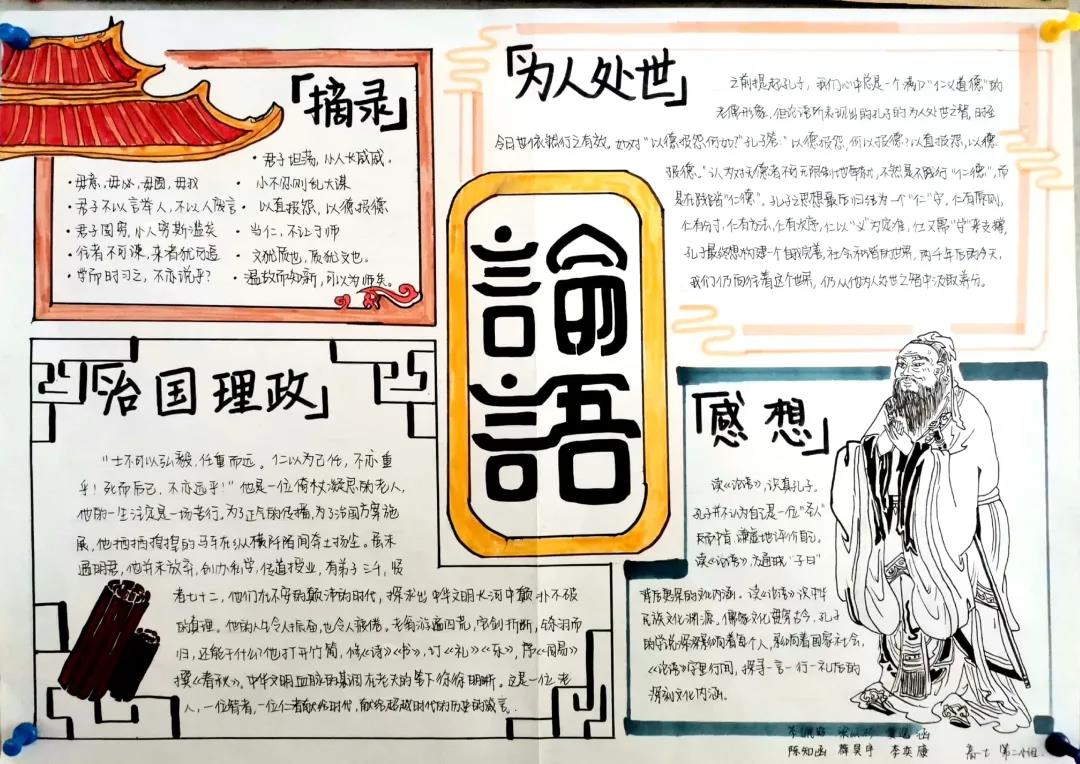 「摘录」
·君子坦荡，小人长戚戚。
·毋意，毋必，毋固，毋我
·小不忍则乱大谋
·君子不以言举人，不以人废言
·以直报怨，以德报德
·君子固穷，小人穷斯滥矣
·当仁，不让于师
·往者不可谏，来者犹可追
·文犹质也，质犹文也。
·学而时习之，不亦说乎？
·温故而知新，可以为师矣。
「为人处世」
之前提起孔子，我们心中总是一个满口"仁义道德"的
老儒形象，但论语所表现出的孔子的为人处世之智，时至
今日也依然行之有效。如对"以德报怨何如？"孔子答："以德报怨，何以报德？以直报怨，以德
报德。"认为对无德者不可无限制地
是在践踏"仁德"。孔子之思想最后归结为一个"仁"字，仁有原则，
仁有分寸，仁有方法，仁有次序，仁以"义"为定准，仁又需
孔子最终想构建一个自我完善，社会和谐的世界，两千年后的今天，
我们仍向往着这个世界，仍从他为人处世之智中汲取养分。
論語
「治国理政」
"士不可以弘毅，任重而远。仁以为己任，不亦重
乎！死而后已，不亦远乎！"他是一位倚杖凝思的老人，
他的一生注定是一场苦行。为了正气的传播，为了治国方案施
展，他栖栖惶惶的马车在纵横阡陌间奔土扬尘。虽未
遇明君，他并未放弃，创办私学，传道授业，有弟子三千，贤
者七十二，他们在不安的颠沛的时代，探求出中华文明长河中颠扑不破
的真理。他的人生令人振奋，也令人疲倦。老翁游遍四荒，宝剑折断，铩羽而
归，还能干什么？他打开竹简，修《诗》《书》，订《礼》《乐》，序《周易》
撰《春秋》。中华文明血脉的基因在老夫的笔下条条明晰。这是一位老
人，一位智者，一位仁者献给时代，献给超越时代的历史的箴言。
「感想」
读《论语》，识真孔子。
孔子并不认为自己是一位"圣人"
反而不吝谦虚地评价自己。
读《论语》，方通晓"子曰"
背后更深的文化内涵。读《论语》识中华
民族文化渊源。儒家文化贯穿古今，孔子
的学说深深影响着每个人，影响着国家社会，
《论语》字里行间，探寻一言一行一礼后的
深刻文化内涵。
陈知函 李奕康 第二小组